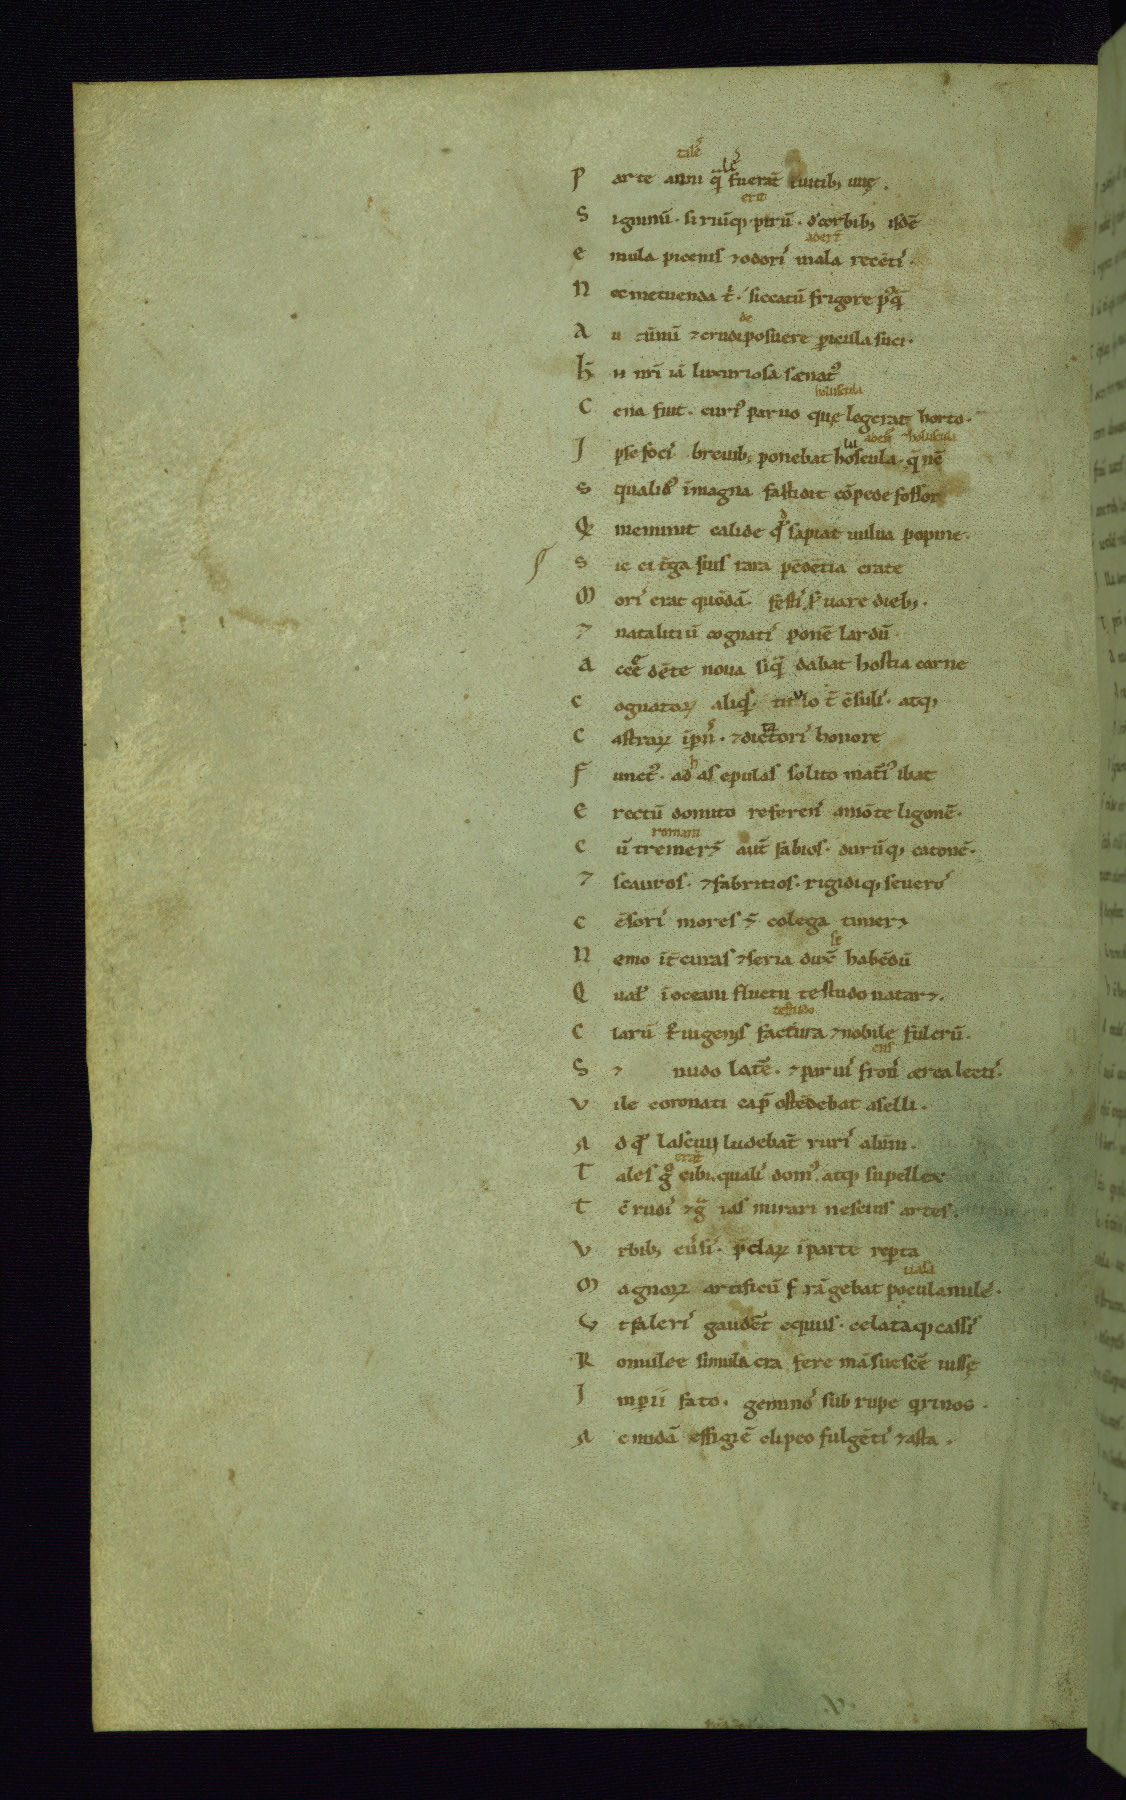 tales
P arte anni q̄les fuerāt i uitib; uuę.
erāt
S igninū. siriūq; pirū. de corbib; isdē
aderāt
E mula picenis ⁊ odoris mala recētis.
N ec metuenda t̄. siccatū frigore pꝰq̄
de
A utūnū ⁊ crudi posuere picula suci.
h ec nr̄i iā luxuriosa senatꝰ
holuscula
C ena fuit. curiꝰ paruo quę legerat horto.
lu adest holuscula
I pse focis breuib; ponebat hoscula. q̄ nē
S qualidꝰ ī magna fastidit cōpede fossor
Q i meminit calide qd sapiat uulua popine.
S ic ci tga suis rara pēdētia crate
M oris erat quōdā. festis s̄uare dieb;.
⁊ nataliciū cognatis ponē lardū.
A ccedēte noua siq̄ dabat hostia carne
C ognatoꝝ aliqs. titulo t̄ cōsulis. atq;
ta
C astroꝝ īpiis. ⁊ dictoris honore
h
F unctꝰ. ad as epulas solito maturiꝰ ibat
E rectū domito referens a mōte ligonē.
romani
C ū tremerēt aut fabios. durūq; catonē.
⁊ scauros. ⁊ fabritios. rigidiq; seueros
C ēsoris mores ēt colega timeret
se
N emo īt curas ⁊ seria duxit habēdū
Q ualis ī oceani fluctu testudo nataret.
testudo
C larū troiugenis factura ⁊ nobile fulcrū.
ens
S ⁊ nudo latēe. ⁊ paruis frons ærea lectis.
V ile coronati cap̄ ostēdebat aselli.
A d qd lasciui ludebāt ruris alūni.
erāt
T ales g° cibi. qualis domꝰ. atq; supellex
T ē rudis ⁊ gias mirari nescius artes.
V rbib; euersis. p̄daꝝ ī parte repta
uasa
M agnoꝝ artificū frāgebat pocula miles.
V t faleris gaudēt equus. celataq; cassis
R omulee simulacra fere māsuescē iussę
I mpii fato. geminos sub rupe q̄rinos.
A c nudā effigiē clipeo fulgētis ⁊ asta.